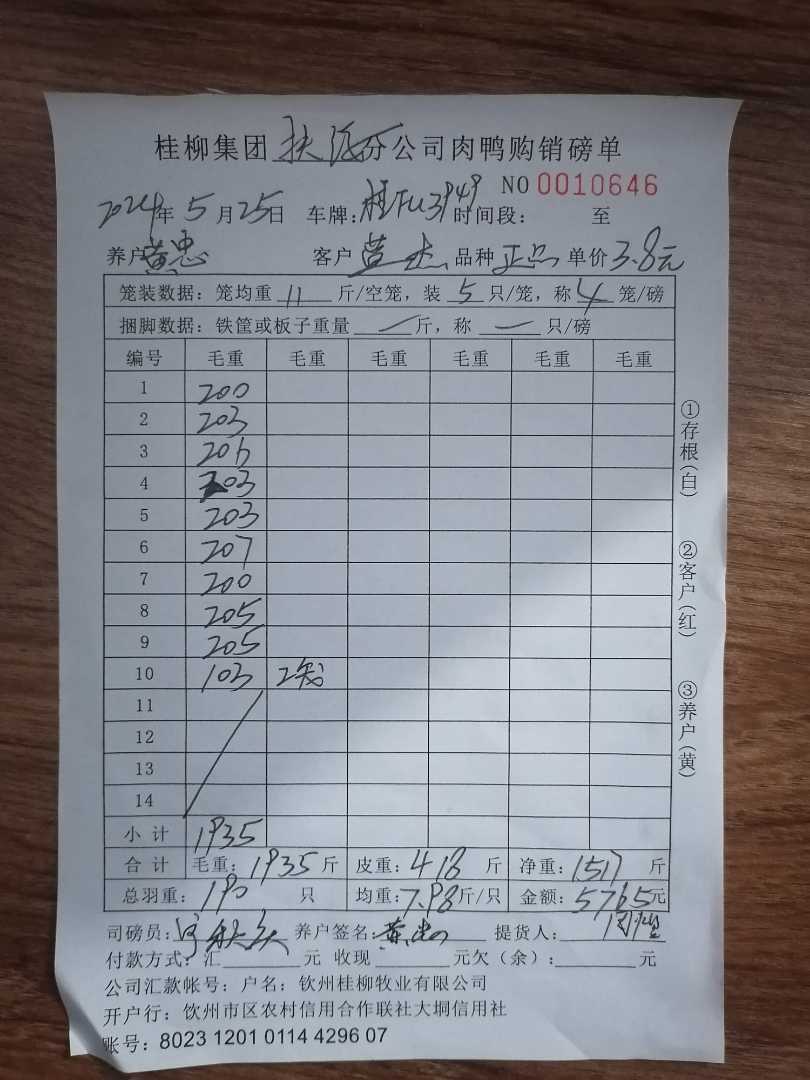 桂柳集团 扶绥 分公司肉鸭购销磅单
NO 0010646
2024年 5 月 25日 车牌：桂FU3949 时间段： 至
养户 黄忠 客户 品种 正品 单价 3.8元
笼装数据：笼均重 11 斤/空笼，装 5 只/笼，称 4 笼/磅
捆脚数据：铁筐或板子重量 — 斤，称 — 只/磅
编号 毛重 毛重 毛重 毛重 毛重 毛重
1 200
2 203
3 206
4 203
5 203
6 207
7 200
8 205
9 205
10 103 2笼
11
12
13
14
小 计 1935
合 计 毛重：1935 斤 皮重：418 斤 净重：1517 斤
总羽重：190 只 均重：7.98斤/只 金额：5765元
司磅员： 养户签名：黄忠 提货人：
付款方式：汇 元 收现 元欠（余）： 元
公司汇款帐号：户名：钦州桂柳牧业有限公司
开户行：钦州市区农村信用合作联社大垌信用社
账号：8023 1201 0114 4296 07
①存根（白）
②客户（红）
③养户（黄）